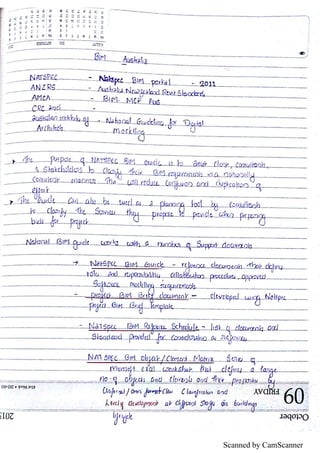 BIM Australia
NATSPEC - Natspec BIM portal - 2011
ANZRS - Australia Newzealand Revit Standards
AMCA - BIM MEP Aus
CRC
Australian Institute of Architects - National Guidelines for Digital
Modelling
The purpose of NATSPEC BIM Guide is to client, consultants,
& Stakeholders to Clarify their BIM requirements in a nationally
Consistent manner. This will reduce Confusion and duplication of
effort
The Guide can also be used as a planning tool by consultants
to clarify the Services they propose to provide when preparing
bids for project
National BIM guide works with a number of Support documents
→ Natspec BIM Guide - reference document that defines
roles and responsibility, collaboration procedure, approved
Software, modelling requirements
- project BIM Brief document - developed using Natspec
project BIM Brief template
- Natspec BIM Reference Schedule - list of documents and
Standard provided for consideration as reference
NATSPEC BIM object/Element Matrix Series of
microsoft excel worksheet that defines a large
no. of objects and elements and their properties by
Uniformat/Omni format Classification and
Level of development at different Stage of buildings
lifecycle
FRIDAY 09
October
2015
Scanned by CamScanner